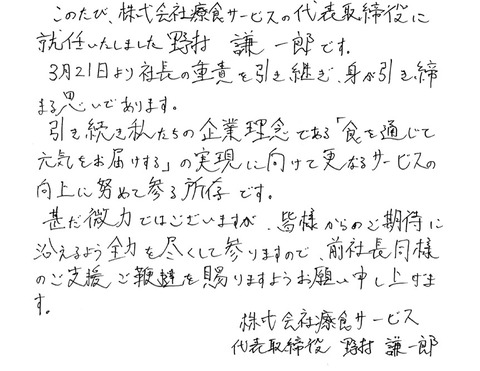 このたび、株式会社療食サービスの代表取締役に
就任いたしました野村 謙一郎です。
3月21日より社長の重責を引き継ぎ、身が引き締
まる思いであります。
引き続き私たちの企業理念である「食を通じて
元気をお届けする」の実現に向けて更なるサービスの
向上に努めて参る所存です。
甚だ微力ではございますが、皆様からのご期待に
沿えるよう全力を尽くして参りますので、前社長同様
のご支援 ご鞭撻を賜りますようお願い申し上げま
す。
株式会社療食サービス
代表取締役 野村 謙一郎